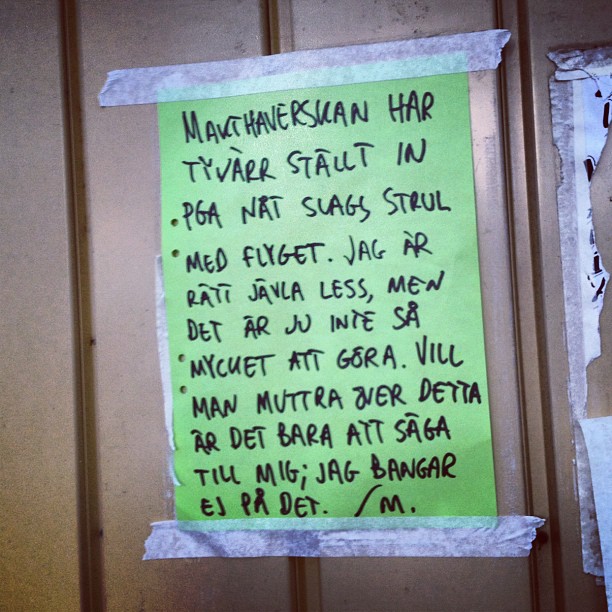 MAKTHAVERSKAN HAR
TYVÄRR STÄLLT IN
PGA NÅT SLAGS STRUL
MED FLYGET. JAG ÄR
RÄTT JÄVLA LESS, MEN
DET ÄR JU INTE SÅ
MYCKET ATT GÖRA. VILL
MAN MUTTRA ÖVER DETTA
ÄR DET BARA ATT SÄGA
TILL MIG; JAG BANGAR
EJ PÅ DET. /M.